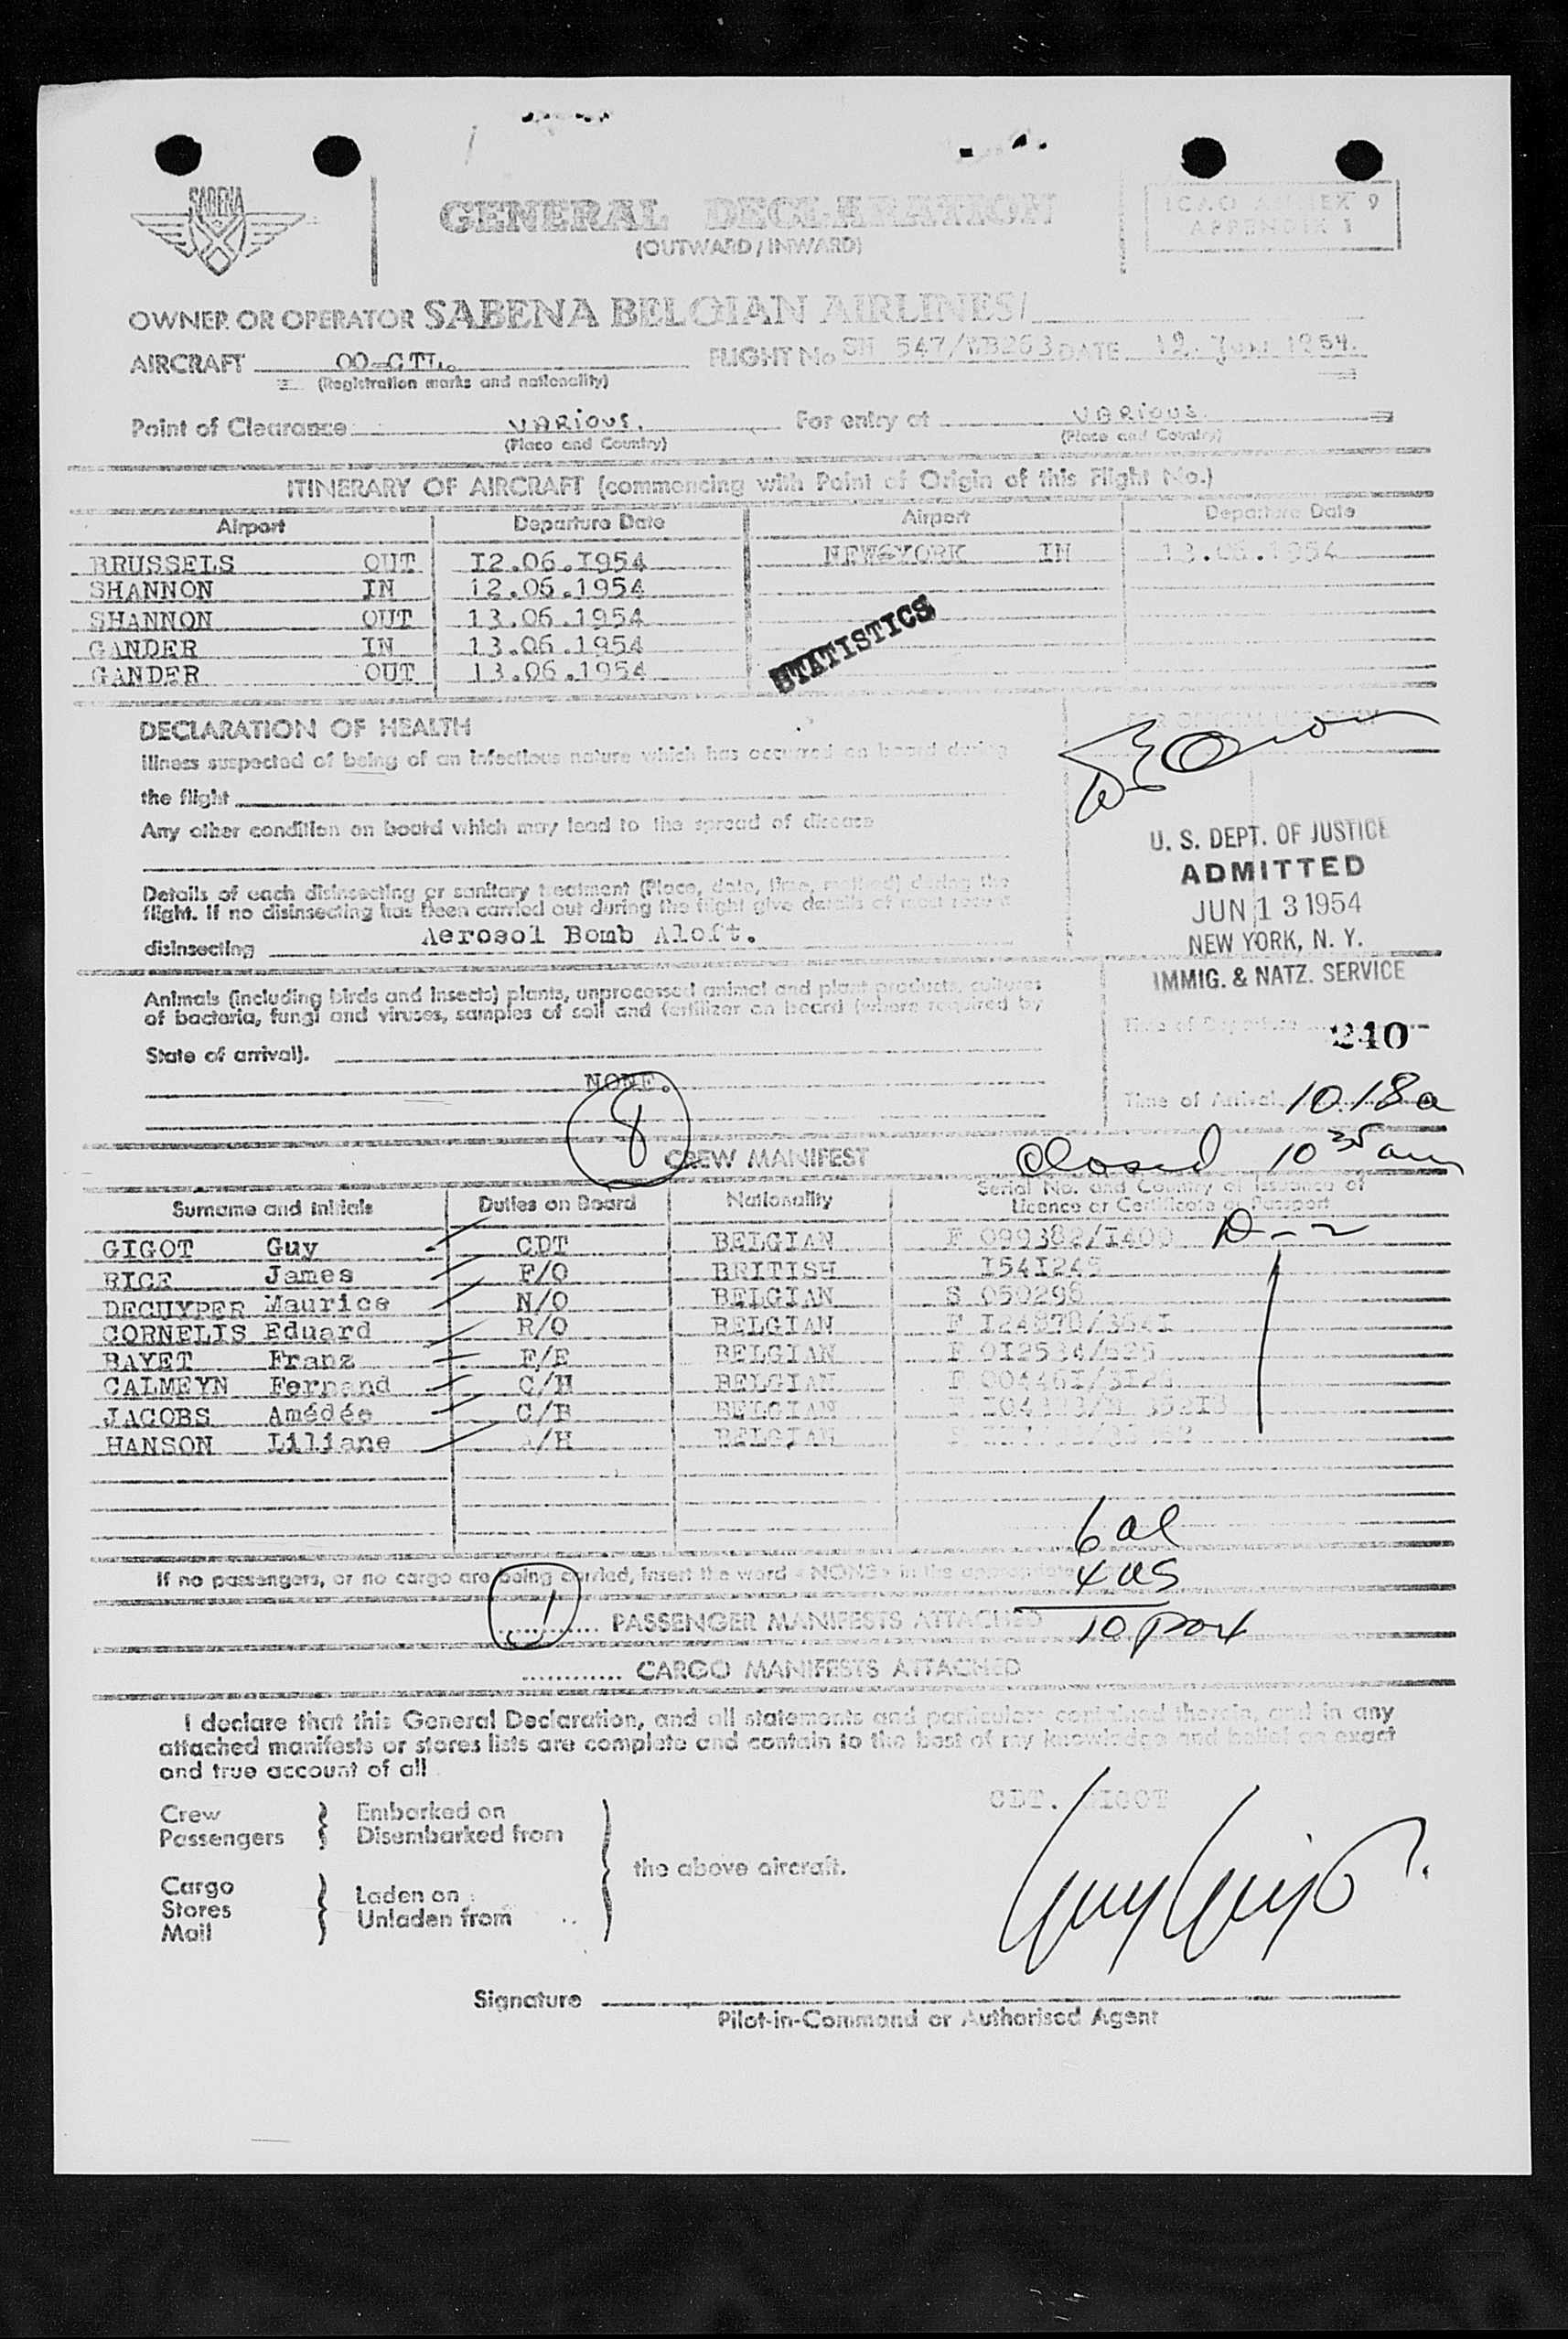 SABENA
GENERAL DECLARATION
(OUTWARD / INWARD)
ICAO ANNEX 9
APPENDIX 1
OWNER OR OPERATOR SABENA BELGIAN AIRLINES/
AIRCRAFT OO-CTL. FLIGHT No SN 547/ DATE 12 Jun 1954.
(Registration marks and nationality)
Point of Clearance VARIOUS. For entry at VARIOUS.
(Place and Country) (Place and Country)
ITINERARY OF AIRCRAFT (commencing with Point of Origin of this Flight No.)
Airport Departure Date Airport Departure Date
BRUSSELS OUT 12.06.1954 NEW-YORK IN 13.06.1954
SHANNON IN 12.06.1954
SHANNON OUT 13.06.1954
GANDER IN 13.06.1954
GANDER OUT 13.06.1954
STATISTICS
DECLARATION OF HEALTH
FOR OFFICIAL USE ONLY
Illness suspected of being of an infectious nature which has occurred on board during
the flight
Any other condition on board which may lead to the spread of disease
U. S. DEPT. OF JUSTICE
ADMITTED
JUN 13 1954
NEW YORK, N. Y.
IMMIG. & NATZ. SERVICE
Details of each disinsecting or sanitary treatment (Place, date, time, method) during the
flight. If no disinsecting has been carried out during the flight give details of most recent
disinsecting Aerosol Bomb Aloft.
Animals (including birds and insects) plants, unprocessed animal and plant products, cultures
of bacteria, fungi and viruses, samples of soil and fertilizer on board (where required by
State of arrival).
Time of Departure 240
NONE.
Time of Arrival 10.18a
8
closed 10 35 am
CREW MANIFEST
Surname and Initials Duties on Board Nationality Serial No. and Country of Issuance of
Licence or Certificate or Passport
GIGOT Guy CDT BELGIAN F 099382/1400 D-2
RICE James F/O BRITISH 1541245
DECUYPER Maurice N/O BELGIAN S 050298
CORNELIS Eduard R/O BELGIAN
BAYET Franz F/E BELGIAN
CALMEYN Fernand C/H BELGIAN
JACOBS Amédée C/B BELGIAN
HANSON Liliane /H BELGIAN
6 al
If no passengers, or no cargo are being carried, insert the word « NONE » in the appropriate
4 us
1 PASSENGER MANIFESTS ATTACHED
10 pax
............ CARGO MANIFESTS ATTACHED
I declare that this General Declaration, and all statements and particulars contained therein, and in any
attached manifests or stores lists are complete and contain to the best of my knowledge and belief an exact
and true account of all
CDT. GIGOT
Crew Embarked on
Passengers Disembarked from
the above aircraft.
Cargo Laden on
Stores Unladen from
Mail
Guy Gigot
Signature
Pilot-in-Command or Authorised Agent